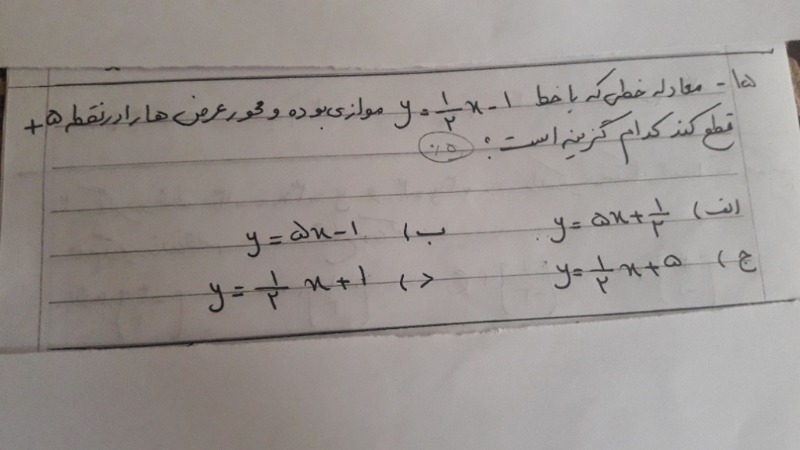 ۱۵- معادله خطی که با خط y = ۱/۲ x - ۱ موازی بوده و محور عرض ها را در نقطه ۵+
قطع کند کدام گزینه است؟ ۰/۵
الف) y = ۵x + ۱/۲ ب) y = ۵x - ۱
ج) y = ۱/۲ x + ۵ د) y = ۱/۲ x + ۱